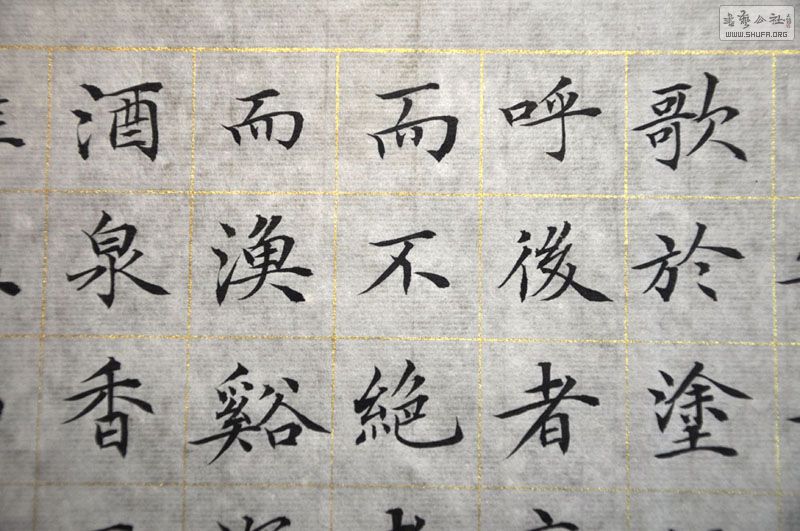 歌於塗
呼後者
而不絶
而漁谿
酒泉香
書藝公社
WWW.SHUFA.ORG